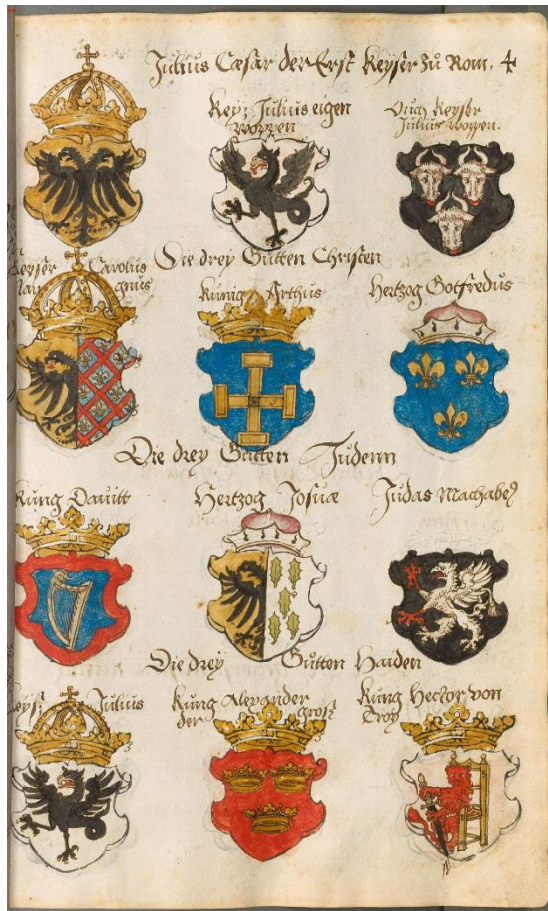 Julius Cæsar der Erst Keyser zu Rom. 4
Key: Julius eigen
woppen
Auch Keyser
Julius woppen.
Die drey Gutten Christen
Keyser Carolus
gnus
Kunig Arthus
Hertzog Gotfredus
Die drey Gutten Judenn
Kung Dauitt
Hertzog Josuæ
Judas Machabeꝰ
Die drey Gutten Haiden
Keys: Julius
Kung Alexander
der grosz
Kung Hector von
Troy